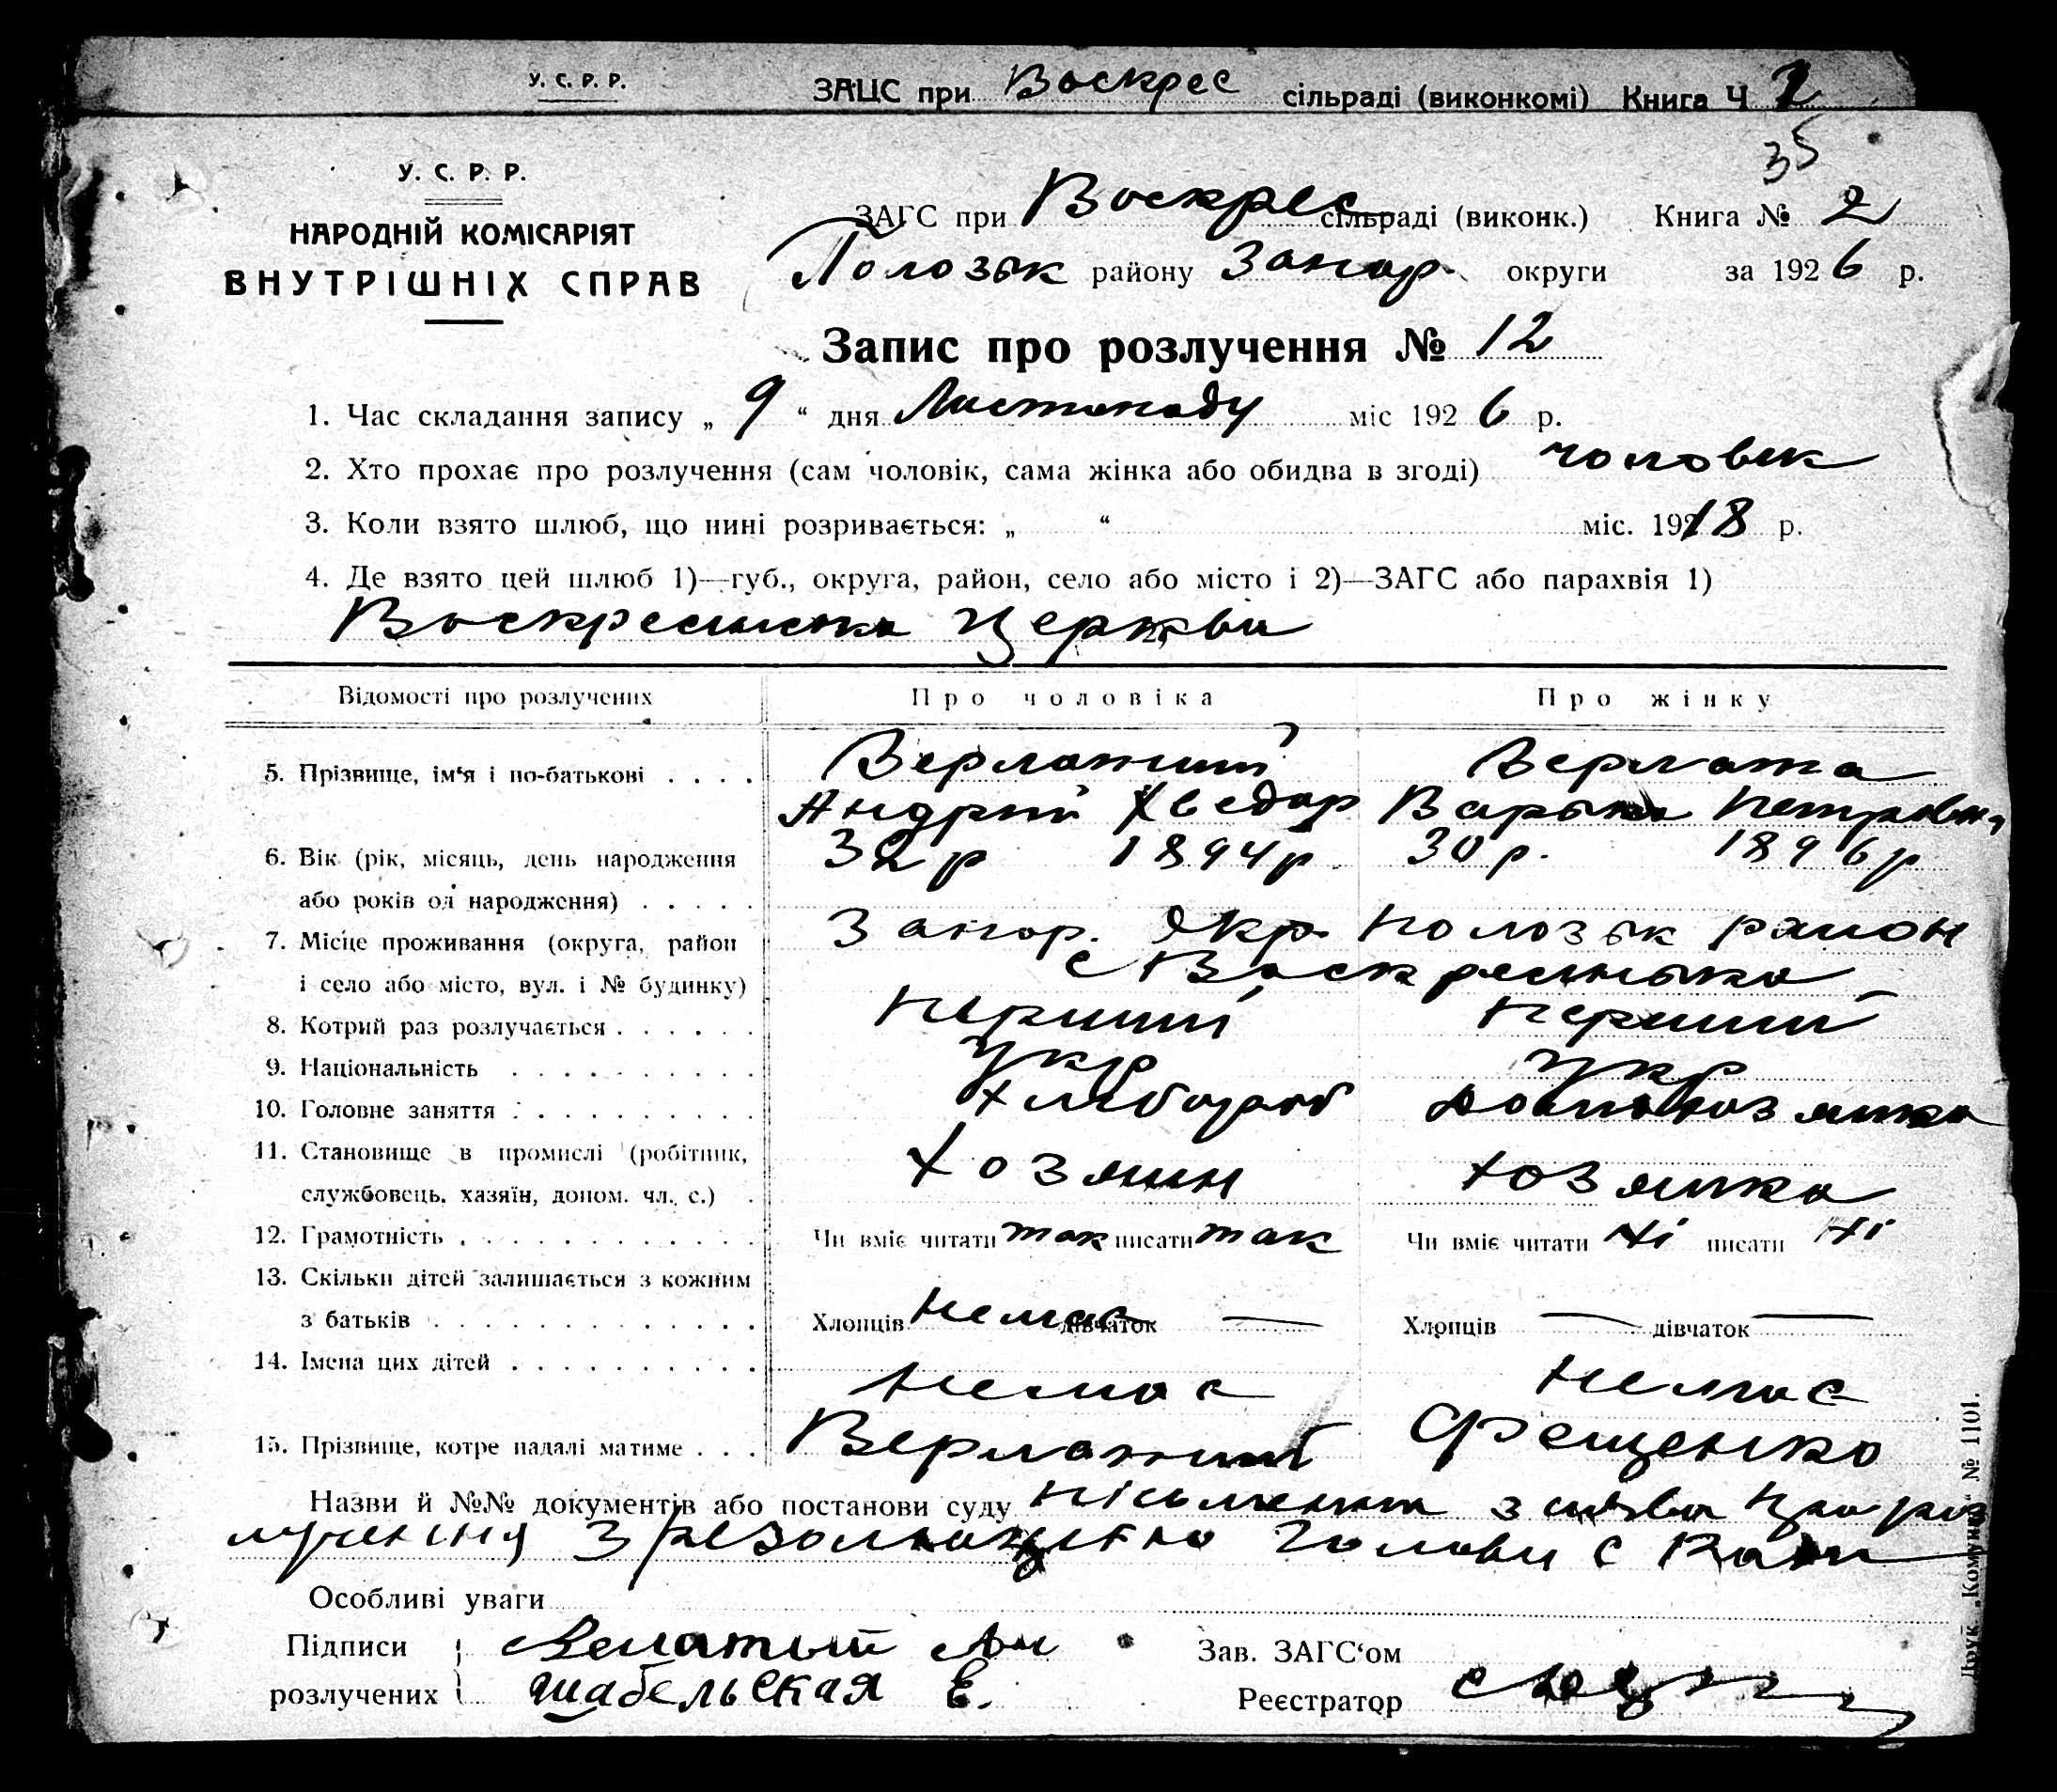 У. С. Р. Р. ЗАЦС при Воскрес сільраді (виконкомі) Книга Ч 2
35
У. С. Р. Р.
НАРОДНІЙ КОМІСАРІЯТ
ВНУТРІШНІХ СПРАВ
ЗАГС при Воскрес сільраді (виконк.) Книга № 2
Полозьк району Запор. округи за 1926 р.
Запис про розлучення № 12
1. Час складання запису „ 9 “ дня Листопаду міс 1926 р.
2. Хто прохає про розлучення (сам чоловік, сама жінка або обидва в згоді) чоловек
3. Коли взято шлюб, що нині розривається: „ “ міс. 1918 р.
4. Де взято цей шлюб 1)—губ., округа, район, село або місто і 2)—ЗАГС або парахвія 1)
Церкви
Відомості про розлучених Про чоловіка Про жінку
5. Прізвище, ім‘я і по-батькові . . . . Верлатий Верлата
Андрий Хведор Варька Петровна
6. Вік (рік, місяць, день народження 32 р 1894 р 30 р. 1896 р
або років од народження) . . . . .
7. Місце проживання (округа, район Запор. Окр. Полозьк район
і село або місто, вул. і № будинку) с Воскресенька
8. Котрий раз розлучається . . . . . . Перший Перший
9. Національність . . . . . . . . . . укр укр
10. Головне заняття . . . . . . . . . . хлебороб
11. Становище в промислі (робітник, Хозяин хозяйка
службовець, хазяїн, допом. чл. с.) .
12. Грамотність . . . . . . . . . . . . Чи вміє читати так писати так Чи вміє читати Ні писати Ні
13. Скільки дітей залишається з кожним
з батьків . . . . . . . . . . . . . Хлопців Немає дівчаток — Хлопців — дівчаток —
14. Імена цих дітей . . . . . . . . . . Немає Немає
15. Прізвище, котре надалі матиме . . . Верлатий Фещенко
Назви й №№ документів або постанови суду заява про роз
лучення з резолюцією Голови С Ради
Особливі уваги
Підписи Ан Зав. ЗАГС‘ом
розлучених Шабельская Е. Реєстратор
Друк. „Комунар“ № 1101.